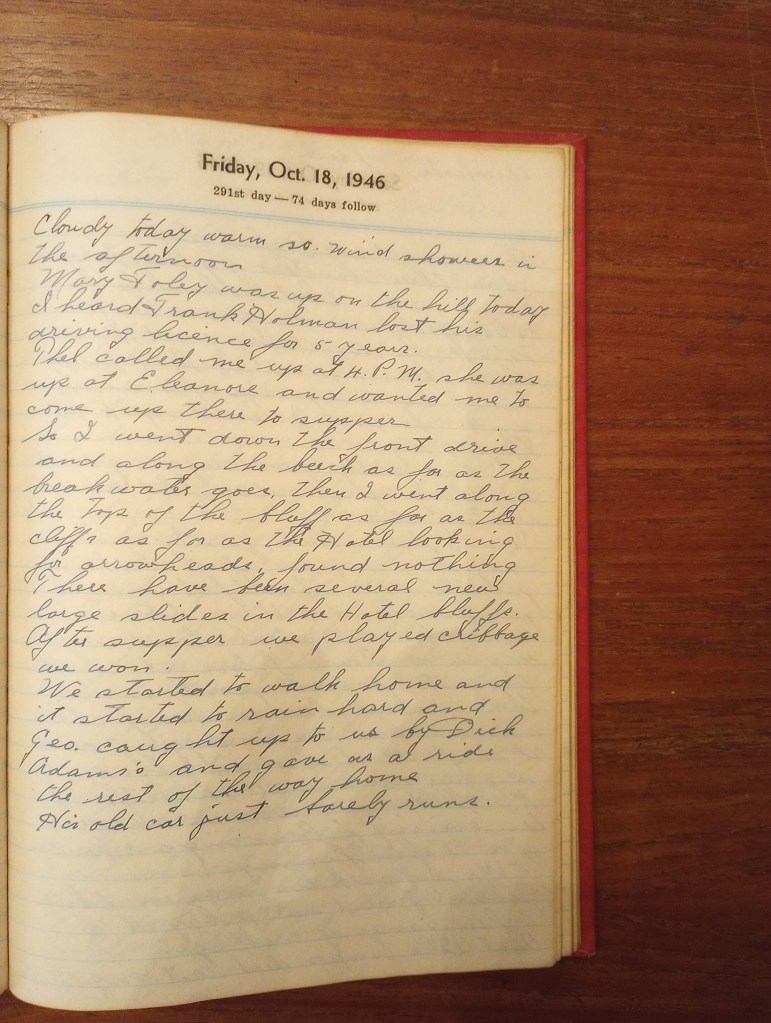 Friday, Oct. 18, 1946
291st day — 74 days follow
Cloudy today warm so. wind showers in
the afternoon
Mary Foley was up on the hill today
I heard Frank Holman lost his
driving licence for 5 years.
Phel called me up at 4. P.M. she was
up at Eleanore and wanted me to
come up there to supper
So I went down the front drive
and along the beach as far as the
breakwater goes, then I went along
the top of the bluff as far as the
cliffs as far as the Hotel looking
for arrowheads, found nothing
There have been several new
large slides in the Hotel bluffs.
After supper we played cribbage
we won.
We started to walk home and
it started to rain hard and
Geo. caught up to us by Dick
Adams's and gave us a ride
the rest of the way home
His old car just barely runs.